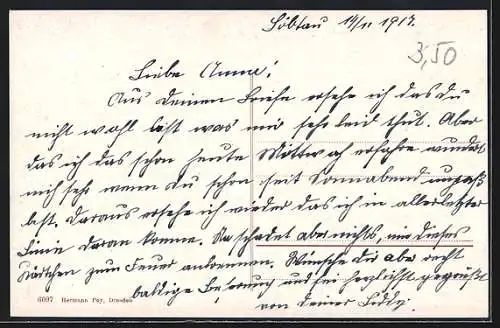 Löbtau 14/11 1917.
3,50
Liebe Anna!
Aus Deinem Briefe ersehe ich das du
nicht wohl bist was mir sehr leid thut. Aber
das ich das schon heute Mittwoch erfahre wundert
mich sehr wenn du schon seit Sonnabend unpaß
bist. Daraus ersehe ich wieder das ich in allerletzter
Linie daran komme. Na schadet aber nichts, nur dieses
zum Feuer anbrennen. Wünsche dir aber recht
baldige Besserung und sei herzlichst gegrüßt
von deiner
6097 Hermann Poy, Dresden